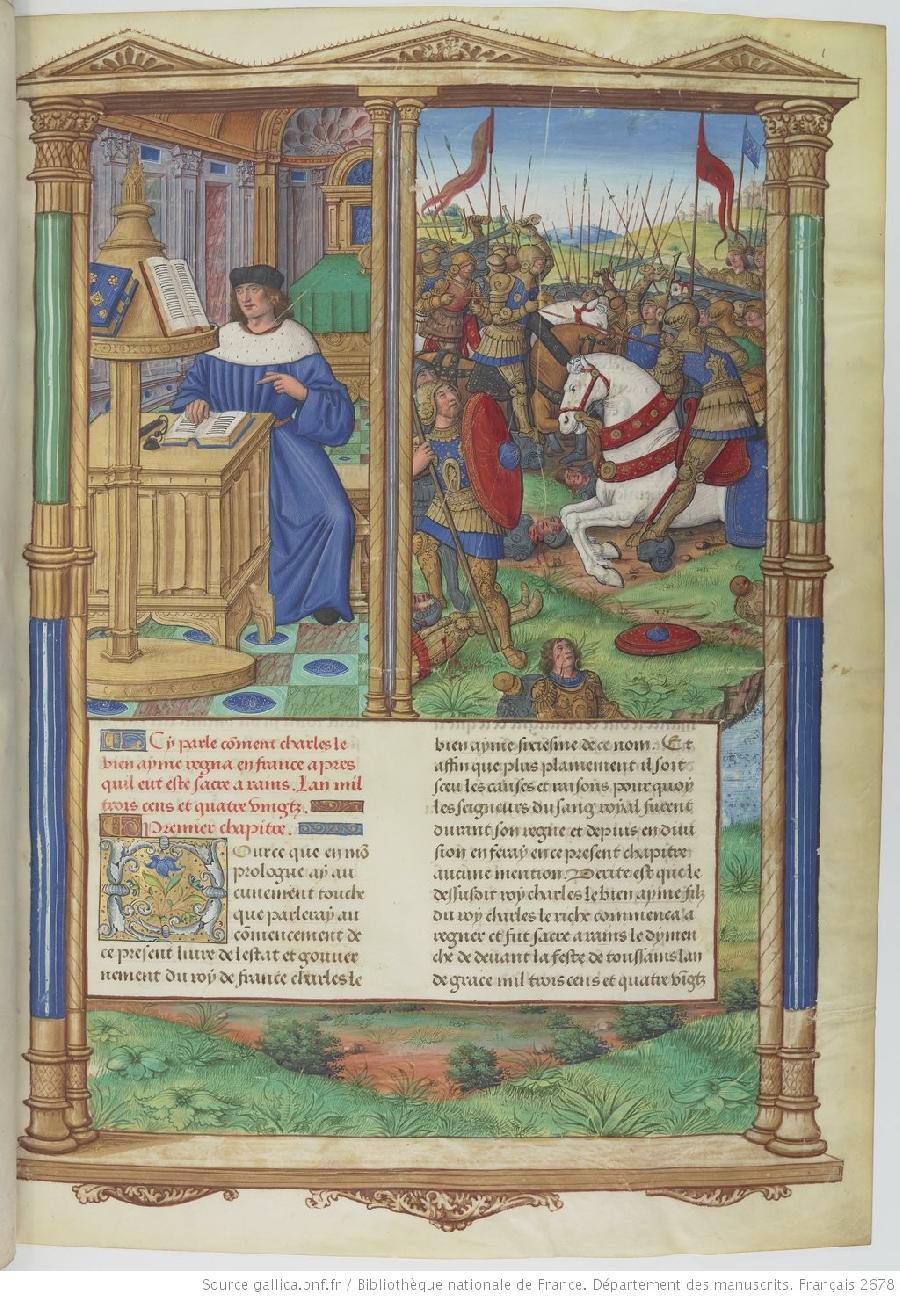 Cy parle cõment charles le
bien ayme regna en france apres
quil eut este sacre a rains. Lan mil
trois cens et quatre vingtz.
Premier chapitre.
Pource que en mõ
prologue ay au
cunement touche
que parleray au
cõmencement de
ce present liure de lestat et gouuer
nement du roy de france charles le
bien ayme sixiesme de ce nom. Et
affin que plus plainement il soit
sceu les causes et raisons pour quoy
les seigneurs du sang royal furent
durant son regne et depuis en diui
sion en feray en ce present chapitre
aucune mention. Verite est que le
dessusdit roy charles le bien ayme filz
du roy charles le riche commenca a
regner et fut sacre a rains le dymen
che de deuant la feste de toussains lan
de grace mil trois cens et quatre vingtz
Source gallica.bnf.fr / Bibliothèque nationale de France. Département des manuscrits. Français 2678